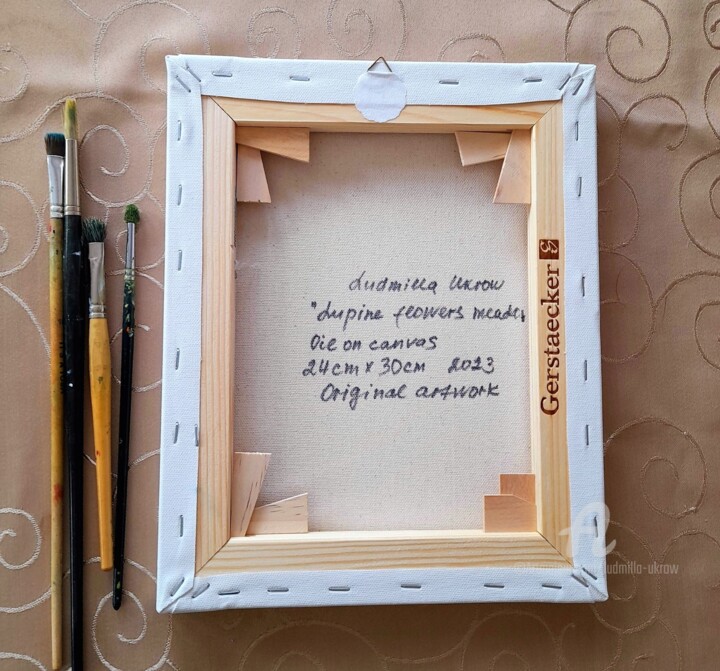 Ludmilla Ukrow
"Lupine flowers meadow
Oil on canvas
24cm x 30cm 2023
Original artwork
Gerstaecker
ludmilla-ukrow